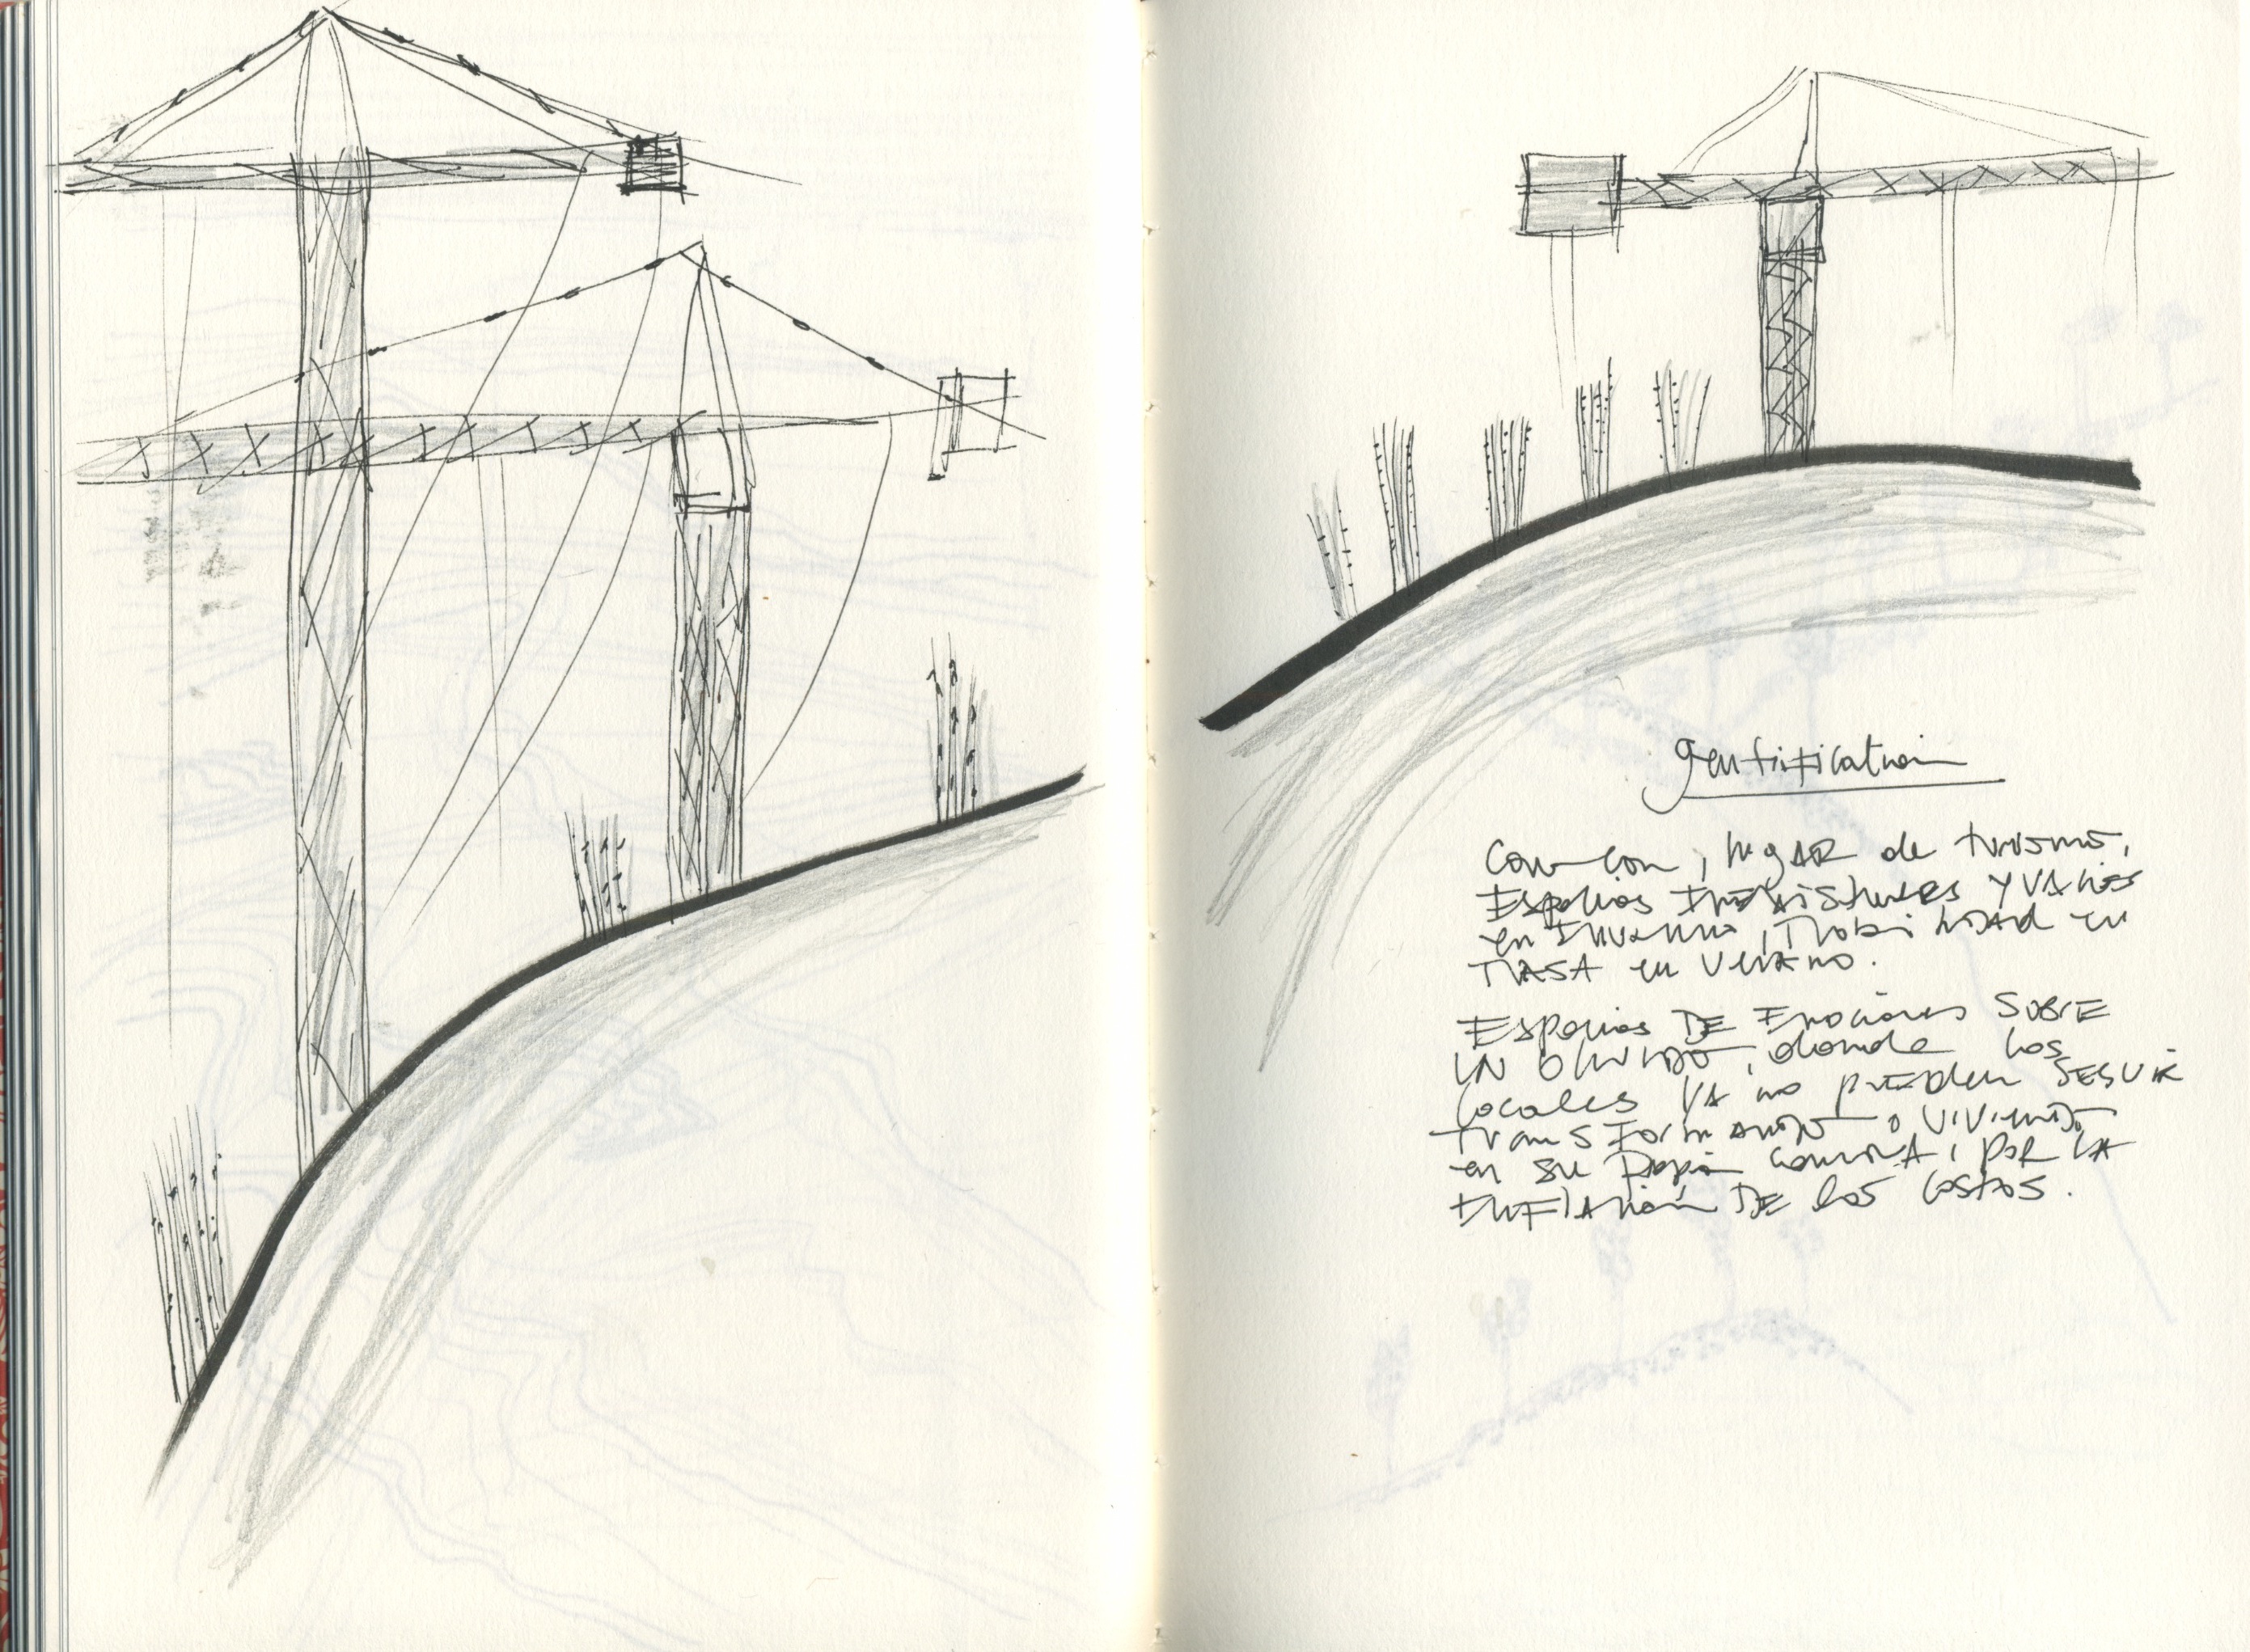 gentrification
Con-con, lugar de turismo,
Espacios y vacíos
en Invierno, Mobilidad en
MASA en verano.
Espacios DE Emociones SOBRE
UN OLVIDO, donde los
locales YA no pueden SEGUIR
transformando o viviendo
en su propia comuna, POR LA
INFLAción DE los costos.